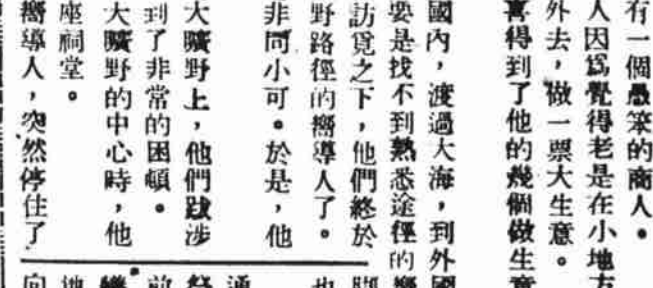 有一個愚笨的商人。
人因爲覺得老是在小地方
外去，做一票大生意。
喜得到了他的幾個做生意
國內，渡過大海，到外國
要是找不到熟悉途徑的嚮
訪覓之下，他們終於
野路徑的嚮導人了。
非同小可。於是，他
大曠野上，他們跋涉
到了非常的困頓。
大曠野的中心時，他
座祠堂。
嚮導人，突然停住了